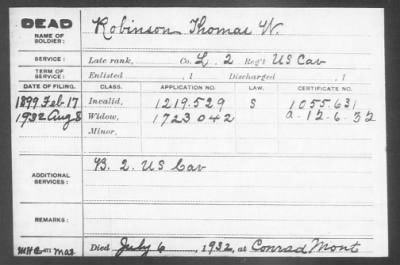 DEAD
NAME OF SOLDIER:
Robinson Thomas W.
SERVICE:
Late rank, Co. L. 2 Reg't US Cav
TERM OF SERVICE:
Enlisted , 1 Discharged , 1
DATE OF FILING. CLASS. APPLICATION NO. LAW. CERTIFICATE NO.
1899 Feb 17 Invalid, 1219.529 S 1055.631
1932 Aug 8 Widow, 1723042 a-12-6.32
Minor,
ADDITIONAL SERVICES:
B. 2. US Cav
REMARKS:
Died July 6, 1932, at Conrad Mont